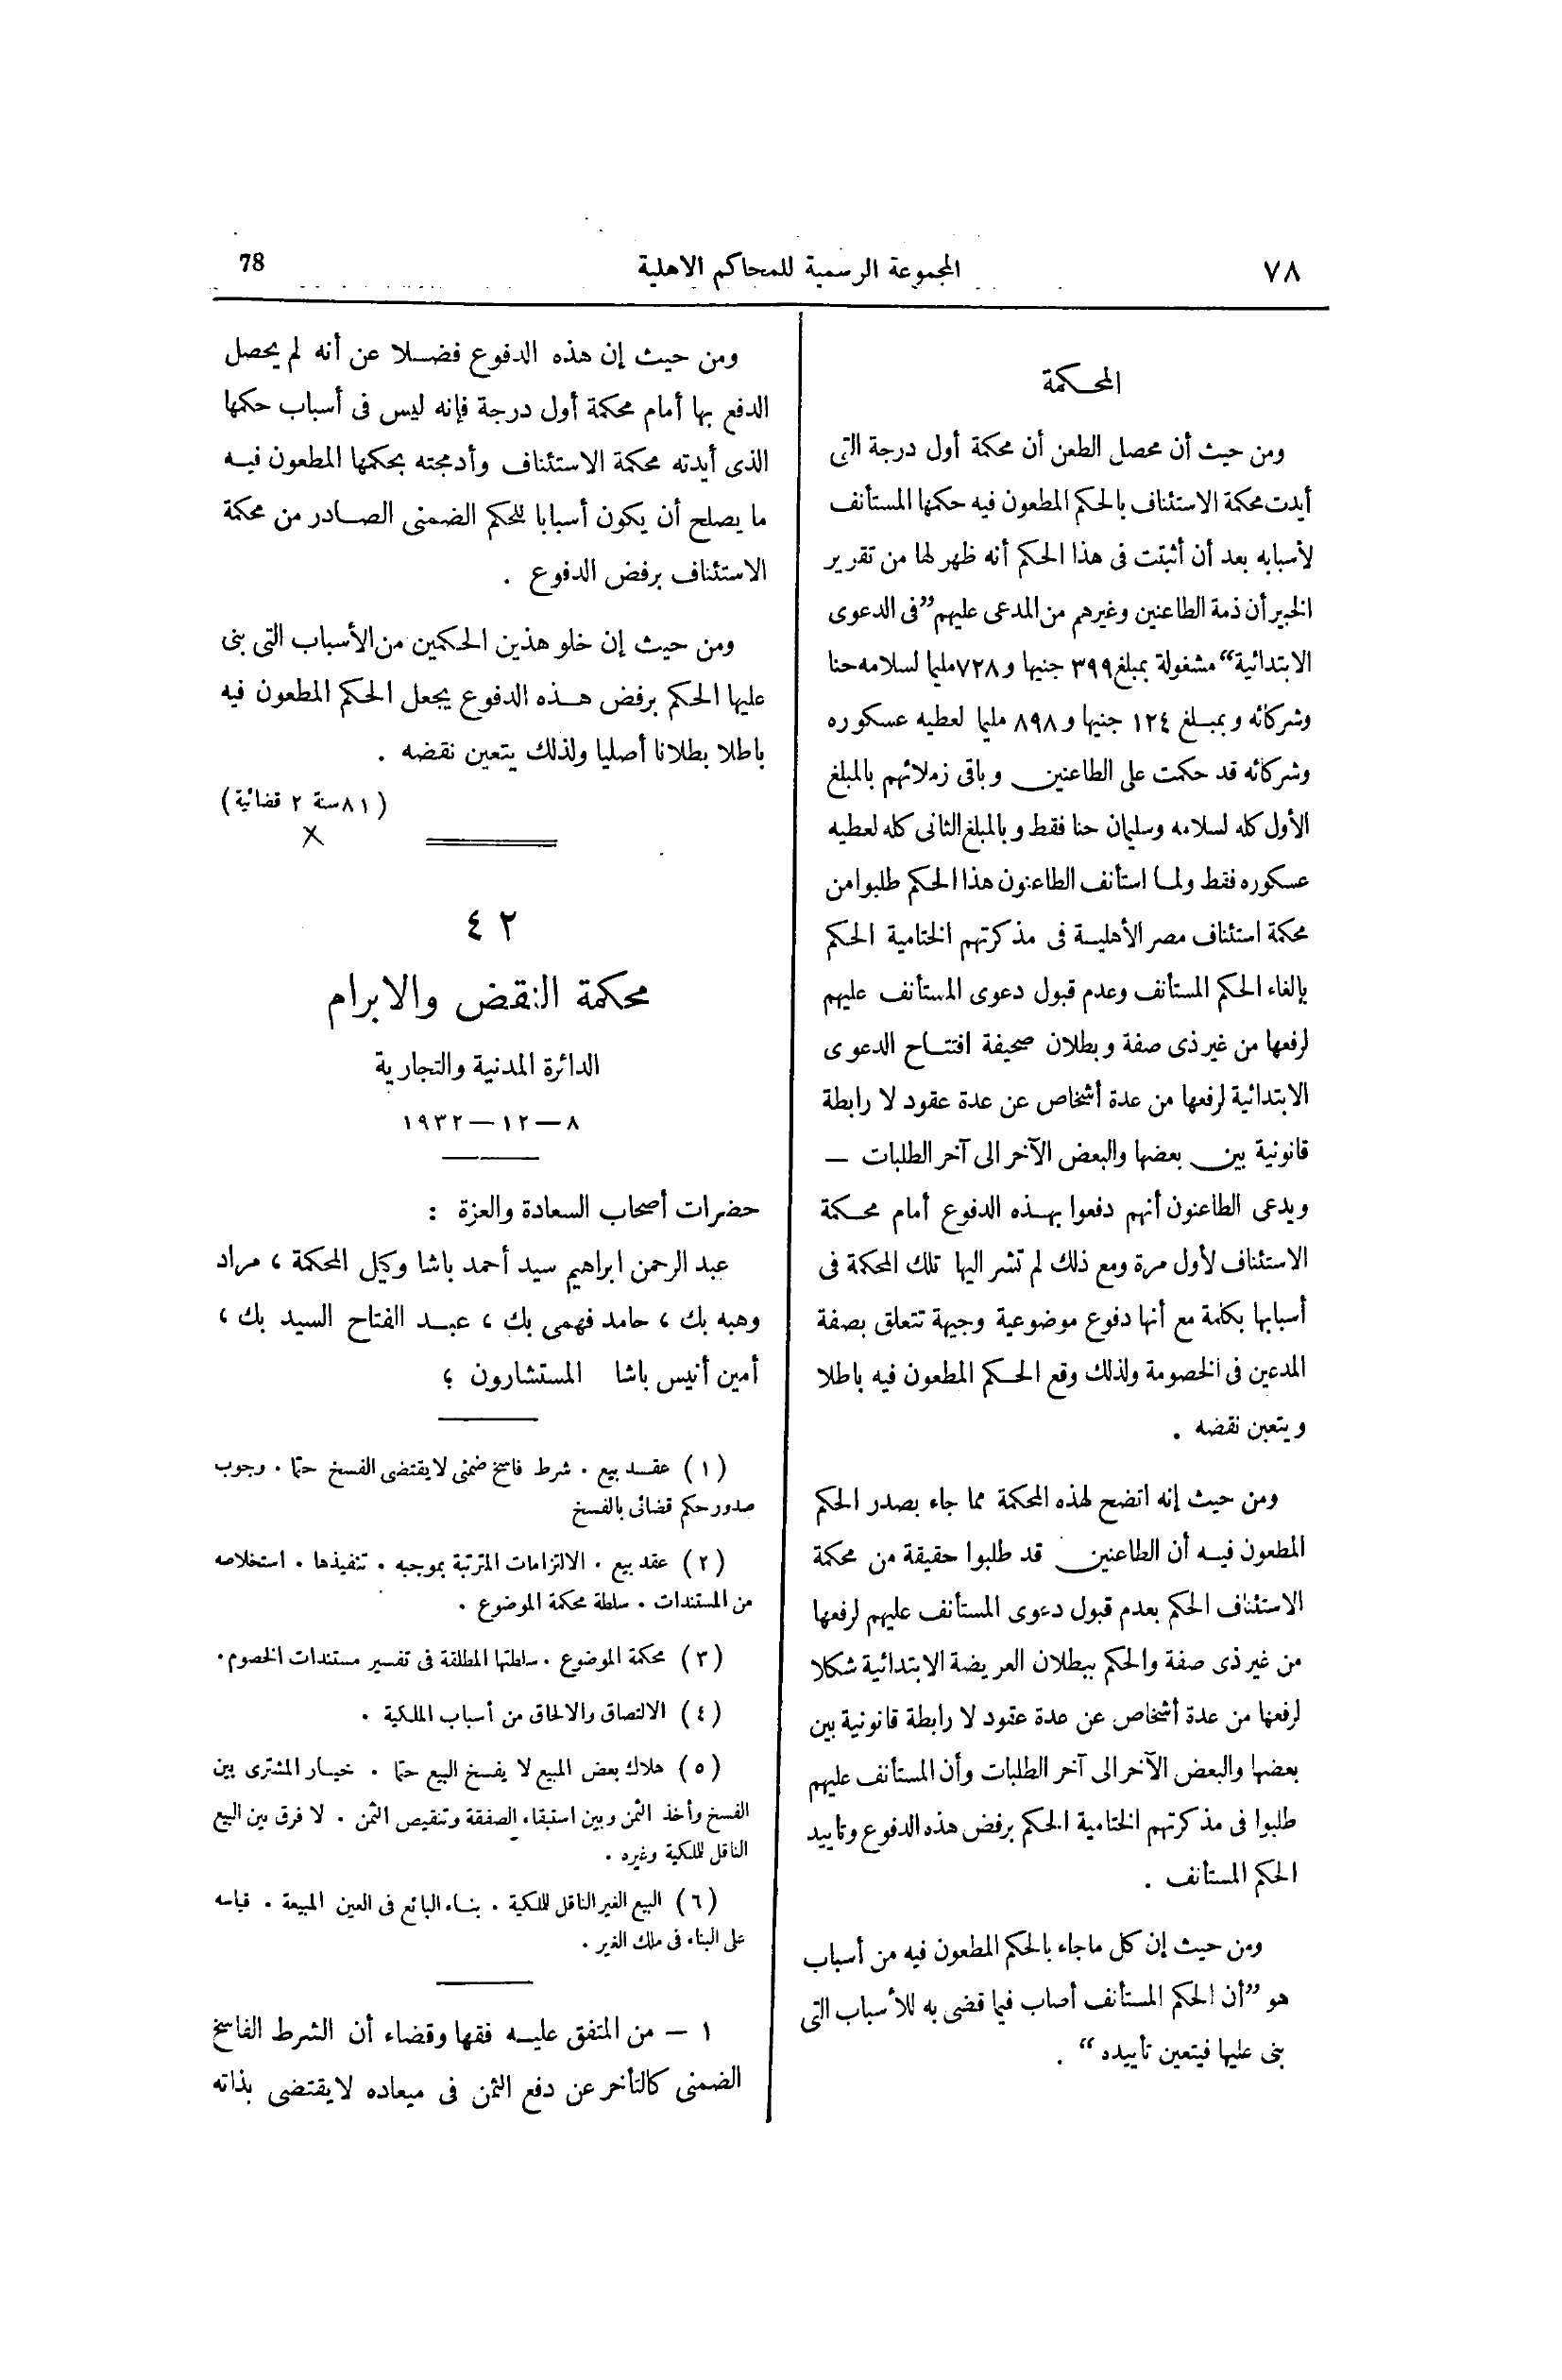 ٧٨
المجموعة الرسمية للمحاكم الاهلية
78
المحكمة
ومن حيث أن محصل الطعن أن محكمة أول درجة التى
أيدت محكمة الاستئناف بالحكم المطعون فيه حكمها المستأنف
لأسبابه بعد أن أثبتت فى هذا الحكم أنه ظهر لها من تقرير
الخبير أن ذمة الطاعنين وغيرهم من المدعى عليهم ”فى الدعوى
الابتدائية“ مشغولة بمبلغ ٣٩٩ جنيها و ٧٢٨ مليما لسلامه حنا
وشركائه وبمبلغ ١٢٤ جنيها و ٨٩٨ مليما لعطيه عسكوره
وشركائه قد حكمت على الطاعنين وباقى زملائهم بالمبلغ
الأول كله لسلامه وسليمان حنا فقط وبالمبلغ الثانى كله لعطيه
عسكوره فقط ولما استأنف الطاعنون هذا الحكم طلبوا من
محكمة استئناف مصر الأهلية فى مذكرتهم الختامية الحكم
بإلغاء الحكم المستأنف وعدم قبول دعوى المستأنف عليهم
لرفعها من غير ذى صفة وبطلان صحيفة افتتاح الدعوى
الابتدائية لرفعها من عدة أشخاص عن عدة عقود لا رابطة
قانونية بين بعضها والبعض الآخر الى آخر الطلبات —
ويدعى الطاعنون أنهم دفعوا بهذه الدفوع أمام محكمة
الاستئناف لأول مرة ومع ذلك لم تشر اليها تلك المحكمة فى
أسبابها بكلمة مع أنها دفوع موضوعية وجيهة تتعلق بصفة
المدعين فى الخصومة ولذلك وقع الحكم المطعون فيه باطلا
ويتعين نقضه .
ومن حيث إنه اتضح لهذه المحكمة مما جاء بصدر الحكم
المطعون فيه أن الطاعنين قد طلبوا حقيقة من محكمة
الاستئناف الحكم بعدم قبول دعوى المستأنف عليهم لرفعها
من غير ذى صفة والحكم ببطلان العريضة الابتدائية شكلا
لرفعها من عدة أشخاص عن عدة عقود لا رابطة قانونية بين
بعضها والبعض الآخر الى آخر الطلبات وأن المستأنف عليهم
طلبوا فى مذكرتهم الختامية الحكم برفض هذه الدفوع وتأييد
الحكم المستأنف .
ومن حيث إن كل ماجاء بالحكم المطعون فيه من أسباب
هو ”أن الحكم المستأنف أصاب فيما قضى به للأسباب التى
بنى عليها فيتعين تأييده“ .
ومن حيث إن هذه الدفوع فضلا عن أنه لم يحصل
الدفع بها أمام محكمة أول درجة فإنه ليس فى أسباب حكمها
الذى أيدته محكمة الاستئناف وأدمجته بحكمها المطعون فيه
ما يصلح أن يكون أسبابا للحكم الضمنى الصادر من محكمة
الاستئناف برفض الدفوع .
ومن حيث إن خلو هذين الحكمين من الأسباب التى بنى
عليها الحكم برفض هذه الدفوع يجعل الحكم المطعون فيه
باطلا بطلانا أصليا ولذلك يتعين نقضه .
(٨١ سنة ٢ قضائية)
٤٢
محكمة النقض والابرام
الدائرة المدنية والتجارية
٨—١٢—١٩٣٢
حضرات أصحاب السعادة والعزة :
عبد الرحمن ابراهيم سيد أحمد باشا وكيل المحكمة ، مراد
وهبه بك ، حامد فهمى بك ، عبد الفتاح السيد بك ،
أمين أنيس باشا المستشارون ؛
(١) عقد بيع . شرط فاسخ ضمنى لايقتضى الفسخ حتما . وجوب
صدور حكم قضائى بالفسخ
(٢) عقد بيع . الالتزامات المترتبة بموجبه . تنفيذها . استخلاصه
من المستندات . سلطة محكمة الموضوع .
(٣) محكمة الموضوع . سلطتها المطلقة فى تفسير مستندات الخصوم .
(٤) الالتصاق والالحاق من أسباب الملكية .
(٥) هلاك بعض المبيع لا يفسخ البيع حتما . خيار المشترى بين
الفسخ وأخذ الثمن وبين استبقاء الصفقة وتنقيص الثمن . لا فرق بين البيع
الناقل للملكية وغيره .
(٦) البيع الغير الناقل للملكية . بناء البائع فى العين المبيعة . قياسه
على البناء فى ملك الغير .
١ — من المتفق عليه فقها وقضاء أن الشرط الفاسخ
الضمنى كالتأخر عن دفع الثمن فى ميعاده لايقتضى بذاته